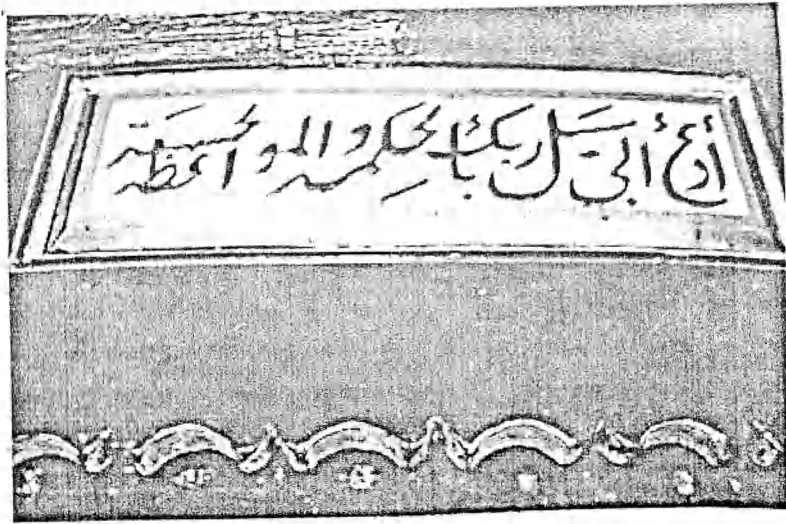 أدع ألى سبيل ربك بالحكمة والموعظة الحسنة